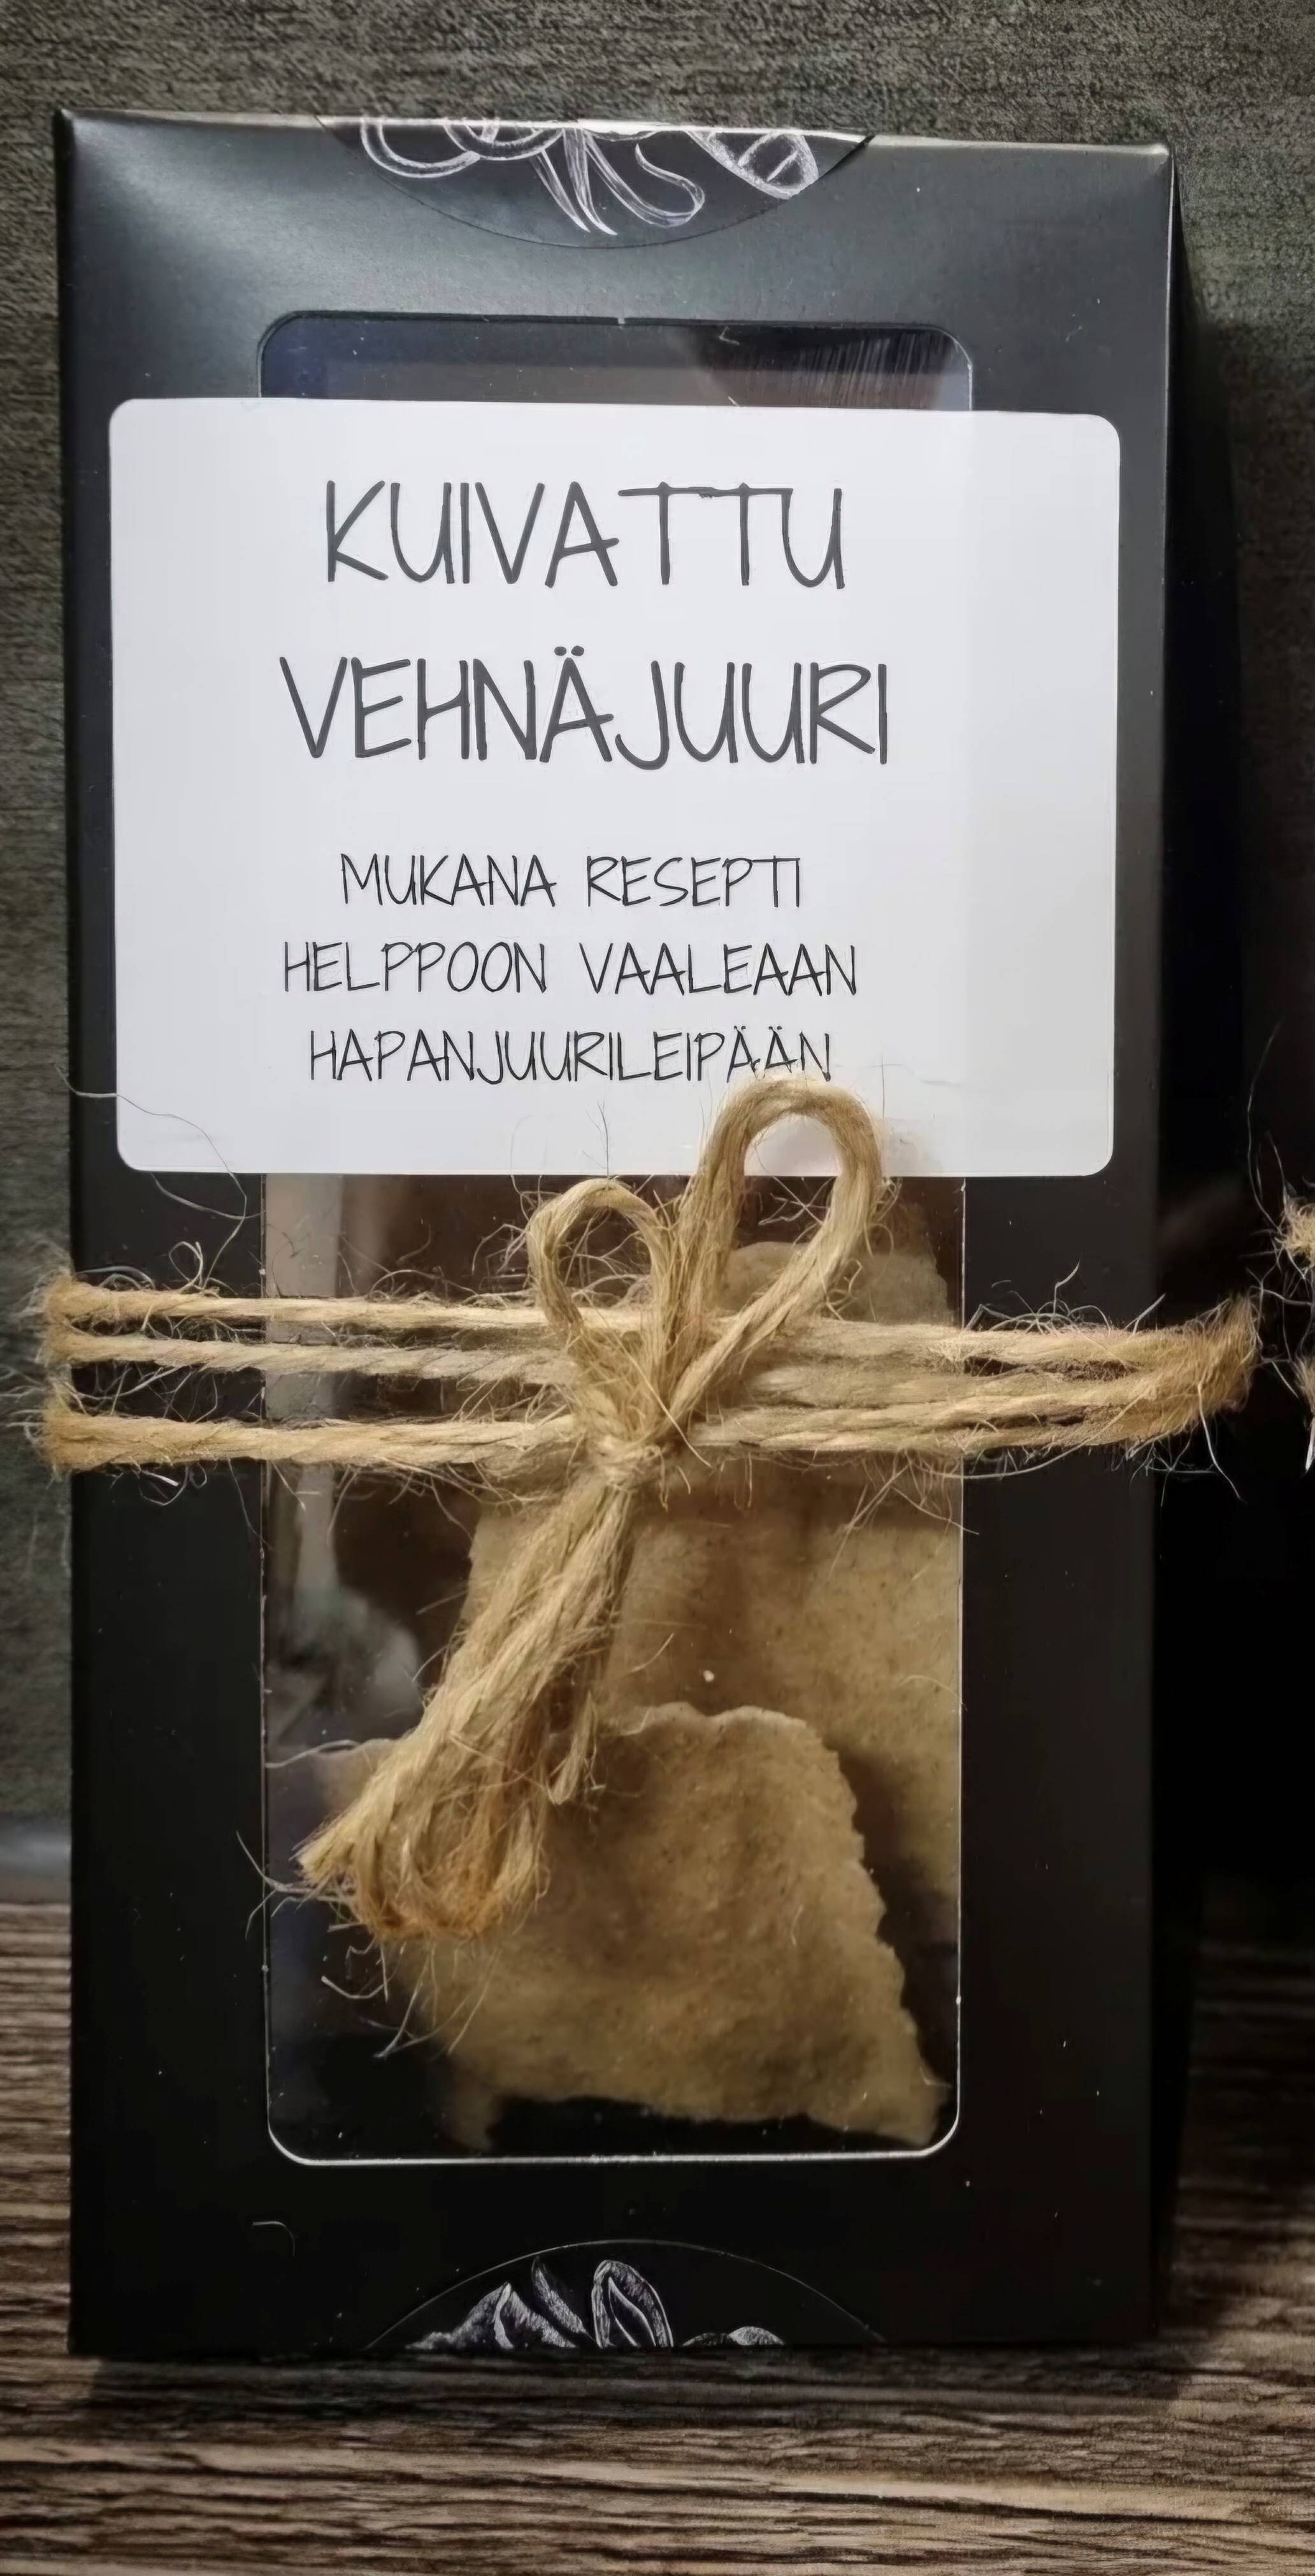 KUIVATTU
VEHNÄJUURI
MUKANA RESEPTI
HELPPOON VAALEAAN
HAPANJUURILEIPÄÄN